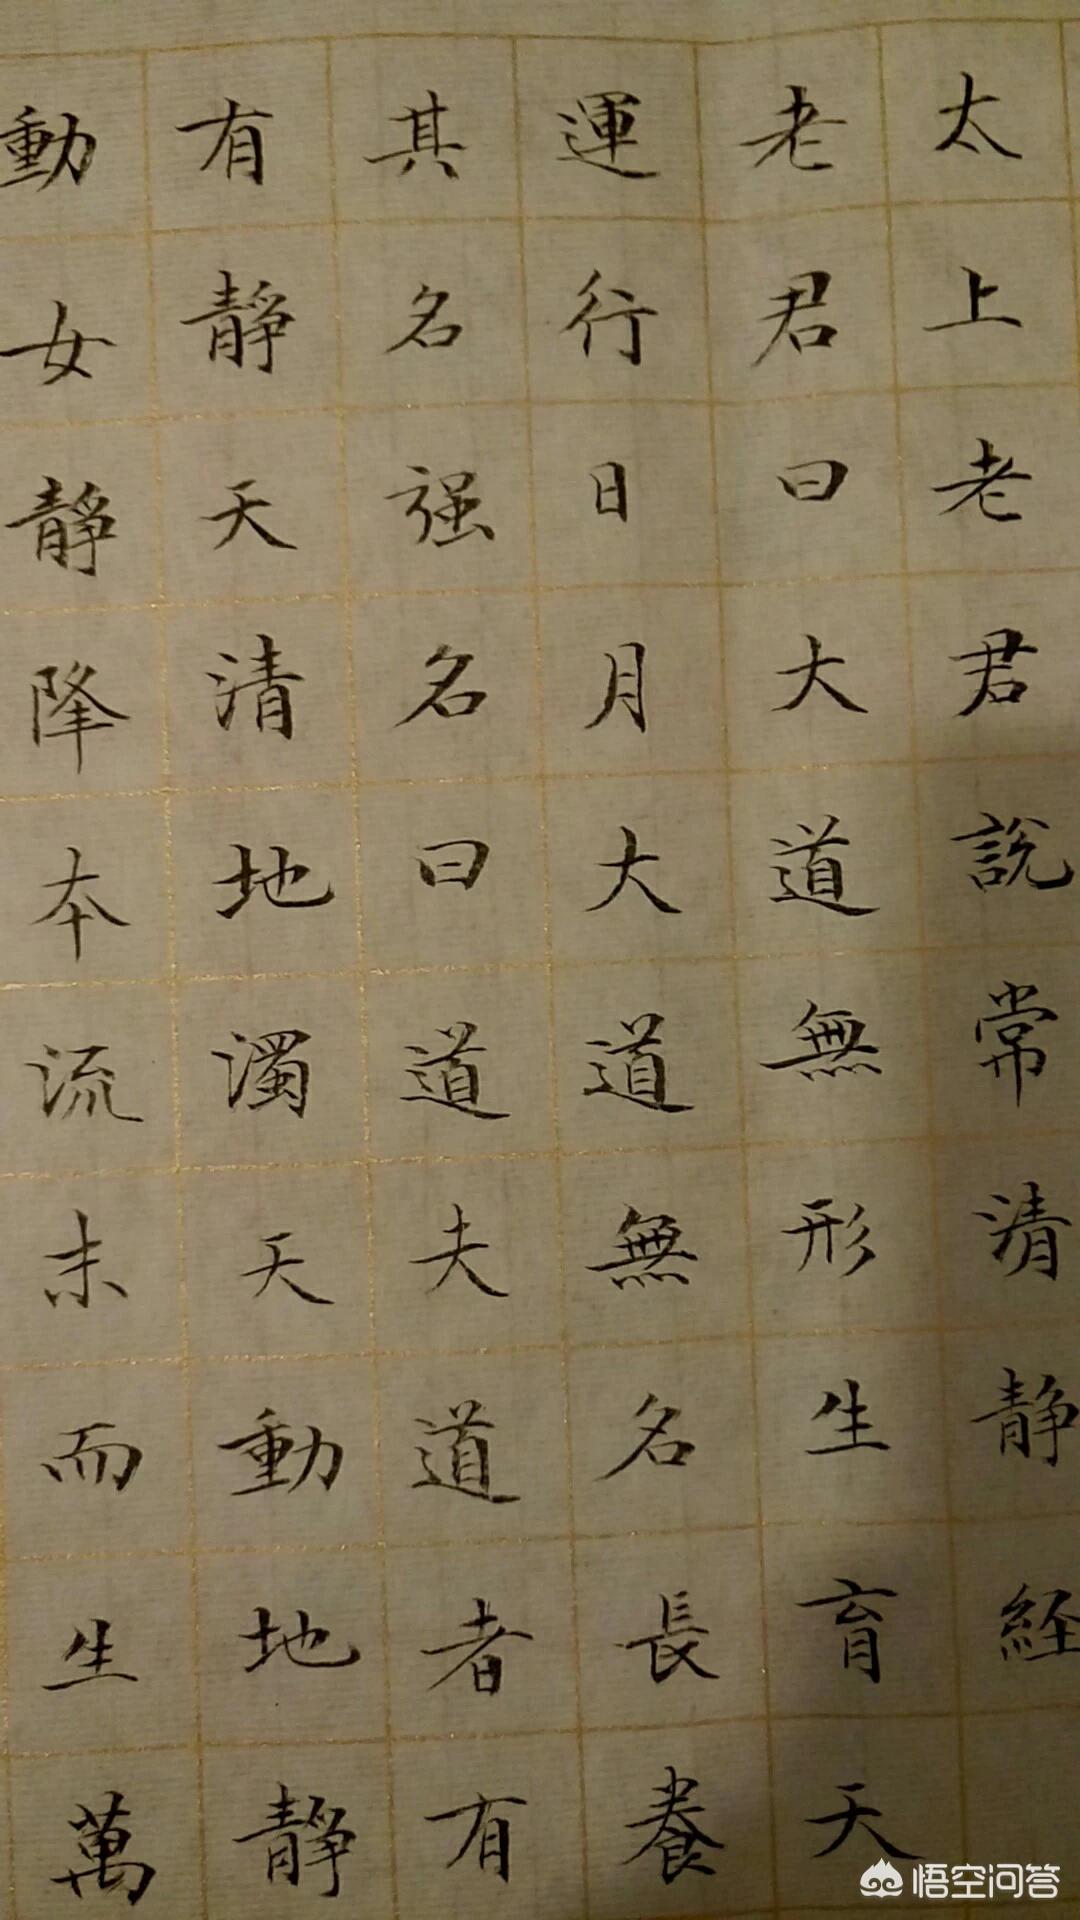 太上老君說常清静経
老君曰大道無形生育天
運行日月大道無名長養
其名强名曰道夫道者有
有静天清地濁天動地静
動女静降本流末而生萬
悟空问答